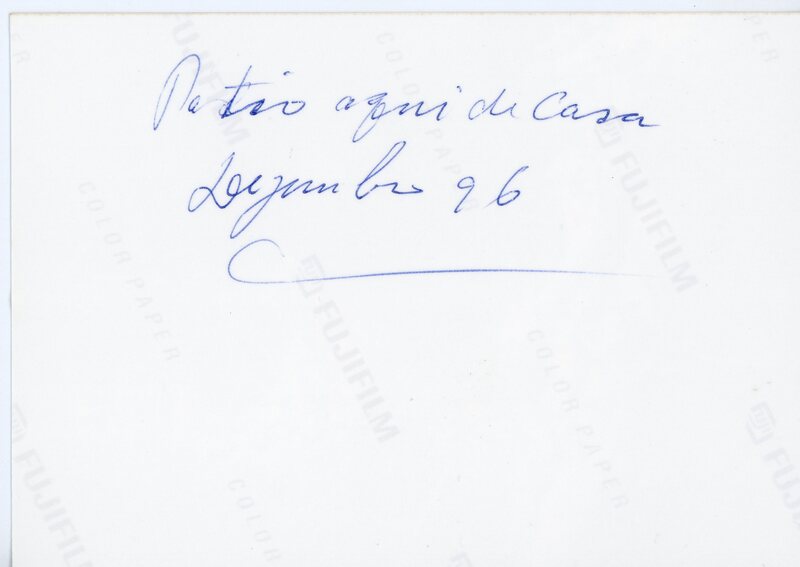 Patio aqui de casa
Dezembro 96
FUJIFILM
COLOR PAPER
FUJIFILM
COLOR PAPER
FUJIFILM
COLOR PAPER
FUJIFILM
COLOR
FUJIFILM